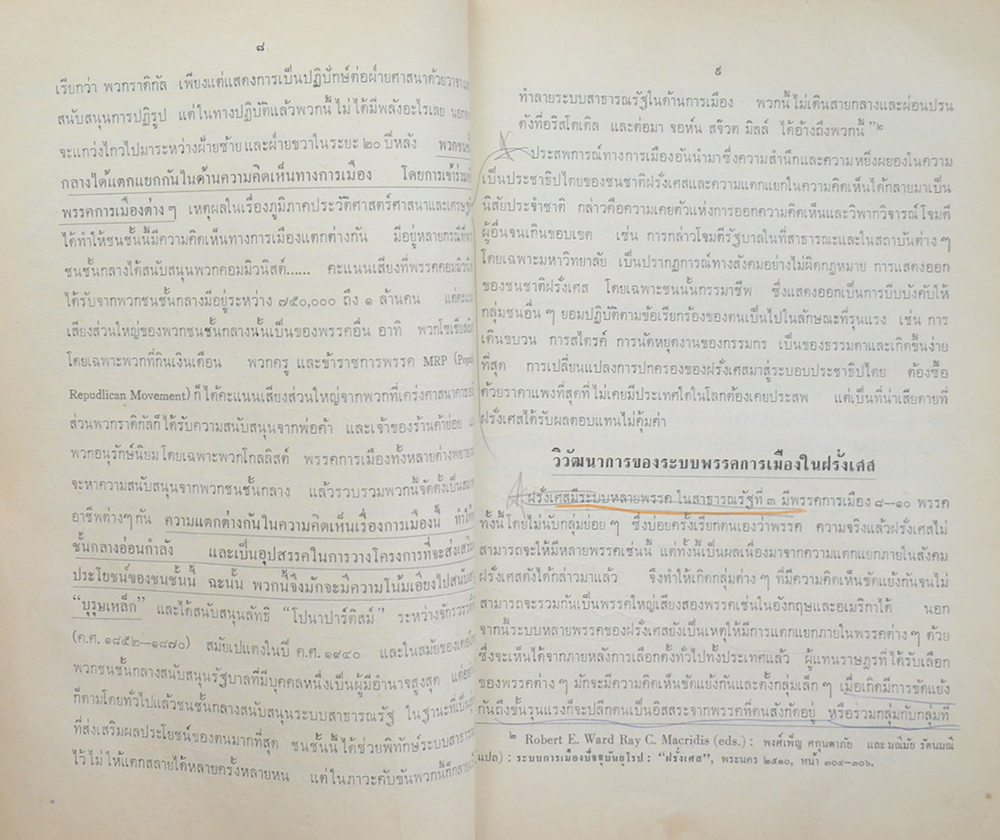 ๘
เรียกว่า พวกราดิกัล เพียงแต่แสดงการเป็นปฏิปักษ์ต่อฝ่ายศาสนาด้วยวาจา
สนับสนุนการปฏิรูป แต่ในทางปฏิบัติแล้วพวกนี้ไม่ได้มีพลังอะไรเลย นอกจาก
จะแกว่งไกวไปมาระหว่างฝ่ายซ้ายและฝ่ายขวาในระยะ ๒๐ ปีหลัง พวกชนชั้น
กลางได้แตกแยกกันในด้านความคิดเห็นทางการเมือง โดยการเข้าร่วมกับ
พรรคการเมืองต่างๆ เหตุผลในเรื่องภูมิภาคประวัติศาสตร์ศาสนาและเศรษฐกิจ
ได้ทำให้ชนชั้นนี้มีความคิดเห็นทางการเมืองแตกต่างกัน มีอยู่หลายกรณีที่พวก
ชนชั้นกลางได้สนับสนุนพวกคอมมิวนิสต์...... คะแนนเสียงที่พรรคคอมมิวนิสต์
ได้รับจากพวกชนชั้นกลางมีอยู่ระหว่าง ๗๕๐,๐๐๐ ถึง ๑ ล้านคน แต่คะแนน
เสียงส่วนใหญ่ของพวกชนชั้นกลางนั้นเป็นของพรรคอื่น อาทิ พวกโซเชียลลิสต์
โดยเฉพาะพวกที่กินเงินเดือน พวกครู และข้าราชการพรรค MRP (Popular
Repudlican Movement) ก็ได้คะแนนเสียงส่วนใหญ่จากพวกที่เคร่งศาสนาคาทอลิก
ส่วนพวกราดิกัลก็ได้รับความสนับสนุนจากพ่อค้า และเจ้าของร้านค้าย่อย
พวกอนุรักษ์นิยมโดยเฉพาะพวกโกลลิสต์ พรรคการเมืองทั้งหลายต่างพยายาม
จะหาความสนับสนุนจากพวกชนชั้นกลาง แล้วรวบรวมพวกนี้จัดตั้งเป็นสมาคม
อาชีพต่างๆกัน ความแตกต่างกันในความคิดเห็นเรื่องการเมืองนี้ ทำให้ชน
ชั้นกลางอ่อนกำลัง และเป็นอุปสรรคในการวางโครงการที่จะส่งเสริม
ประโยชน์ของชนชั้นนี้ ฉะนั้น พวกนี้จึงมักจะมีความโน้มเอียงไปสนับสนุน
“บุรุษเหล็ก” และได้สนับสนุนลัทธิ “โปนาปาร์ติสม์” ระหว่างจักรวรรดิที่
(ค.ศ. ๑๘๕๒—๑๘๗๐) สมัยเปแตงในปี ค.ศ. ๑๙๔๐ และในสมัยของเดอโกล
พวกชนชั้นกลางสนับสนุนรัฐบาลที่มีบุคคลหนึ่งเป็นผู้มีอำนาจสูงสุด แต่อย่างไร
ก็ตามโดยทั่วไปแล้วชนชั้นกลางสนับสนุนระบบสาธารณรัฐ ในฐานะที่เป็น
ที่ส่งเสริมผลประโยชน์ของตนมากที่สุด ชนชั้นนี้ได้ช่วยพิทักษ์ระบบสาธารณรัฐ
ไว้ไม่ให้แตกสลายได้หลายครั้งหลายหน แต่ในภาวะคับขันพวกนี้ก็กลาย
๙
ทำลายระบบสาธารณรัฐในด้านการเมือง พวกนี้ไม่เดินสายกลางและผ่อนปรน
ดังที่อริสโตเติล และต่อมา จอห์น สจ๊วต มิลล์ ได้อ้างถึงพวกนี้”๒
ประสพการณ์ทางการเมืองอันนำมาซึ่งความสำนึกและความหยิ่งผยองในความ
เป็นประชาธิปไตยของชนชาติฝรั่งเศสและความแตกแยกในความคิดเห็นได้กลายมาเป็น
นิสัยประจำชาติ กล่าวคือความเคยตัวแห่งการออกความคิดเห็นและวิพากวิจารณ์โจมตี
ผู้อื่นจนเกินขอบเขต เช่น การกล่าวโจมตีรัฐบาลในที่สาธารณะและในสถาบันต่าง ๆ
โดยเฉพาะมหาวิทยาลัย เป็นปรากฏการณ์ทางสังคมอย่างไม่ผิดกฎหมาย การแสดงออก
ของชนชาติฝรั่งเศส โดยเฉพาะชนชั้นกรรมาชีพ ซึ่งแสดงออกเป็นการบีบบังคับให้
กลุ่มชนอื่น ๆ ยอมปฏิบัติตามข้อเรียกร้องของตนเป็นไปในลักษณะที่รุนแรง เช่น การ
เดินขบวน การสไตรค์ การนัดหยุดงานของกรรมกร เป็นของธรรมดาและเกิดขึ้นง่าย
ที่สุด การเปลี่ยนแปลงการปกครองของฝรั่งเศสมาสู่ระบอบประชาธิปไตย ต้องซื้อ
ด้วยราคาแพงที่สุดที่ไม่เคยมีประเทศใดในโลกต้องเคยประสพ แต่เป็นที่น่าเสียดายที่
ฝรั่งเศสได้รับผลตอบแทนไม่คุ้มค่า
วิวัฒนาการของระบบพรรคการเมืองในฝรั่งเศส
ฝรั่งเศสมีระบบหลายพรรค ในสาธารณรัฐที่ ๓ มีพรรคการเมือง ๘—๑๐ พรรค
ทั้งนี้โดยไม่นับกลุ่มย่อย ๆ ซึ่งบ่อยครั้งเรียกตนเองว่าพรรค ความจริงแล้วฝรั่งเศสไม่
สามารถจะให้มีหลายพรรคเช่นนี้ แต่ทั้งนี้เป็นผลเนื่องมาจากความแตกแยกภายในสังคม
ฝรั่งเศสดังได้กล่าวมาแล้ว จึงทำให้เกิดกลุ่มต่าง ๆ ที่มีความคิดเห็นขัดแย้งกันจนไม่
สามารถจะรวมกันเป็นพรรคใหญ่เสียงสองพรรคเช่นในอังกฤษและอเมริกาได้ นอก
จากนี้ระบบหลายพรรคของฝรั่งเศสยังเป็นเหตุให้มีการแตกแยกภายในพรรคต่าง ๆ ด้วย
ซึ่งจะเห็นได้จากภายหลังการเลือกตั้งทั่วไปทั้งประเทศแล้ว ผู้แทนราษฎรที่ได้รับเลือก
ของพรรคต่าง ๆ มักจะมีความคิดเห็นขัดแย้งกันและตั้งกลุ่มเล็ก ๆ เมื่อเกิดมีการขัดแย้ง
กันถึงขั้นรุนแรงก็จะปลีกตนเป็นอิสสระจากพรรคที่ตนสังกัดอยู่ หรือรวมกลุ่มกับกลุ่มที่
๒ Robert E. Ward Ray C. Macridis (eds.) : พงศ์เพ็ญ ศกุนตาภัย และ มณีมัย รัตนมณี
แปล) : ระบบการเมืองปัจจุบันยุโรป : “ฝรั่งเศส”, พระนคร ๒๕๑๐, หน้า ๓๐๔—๓๐๖.